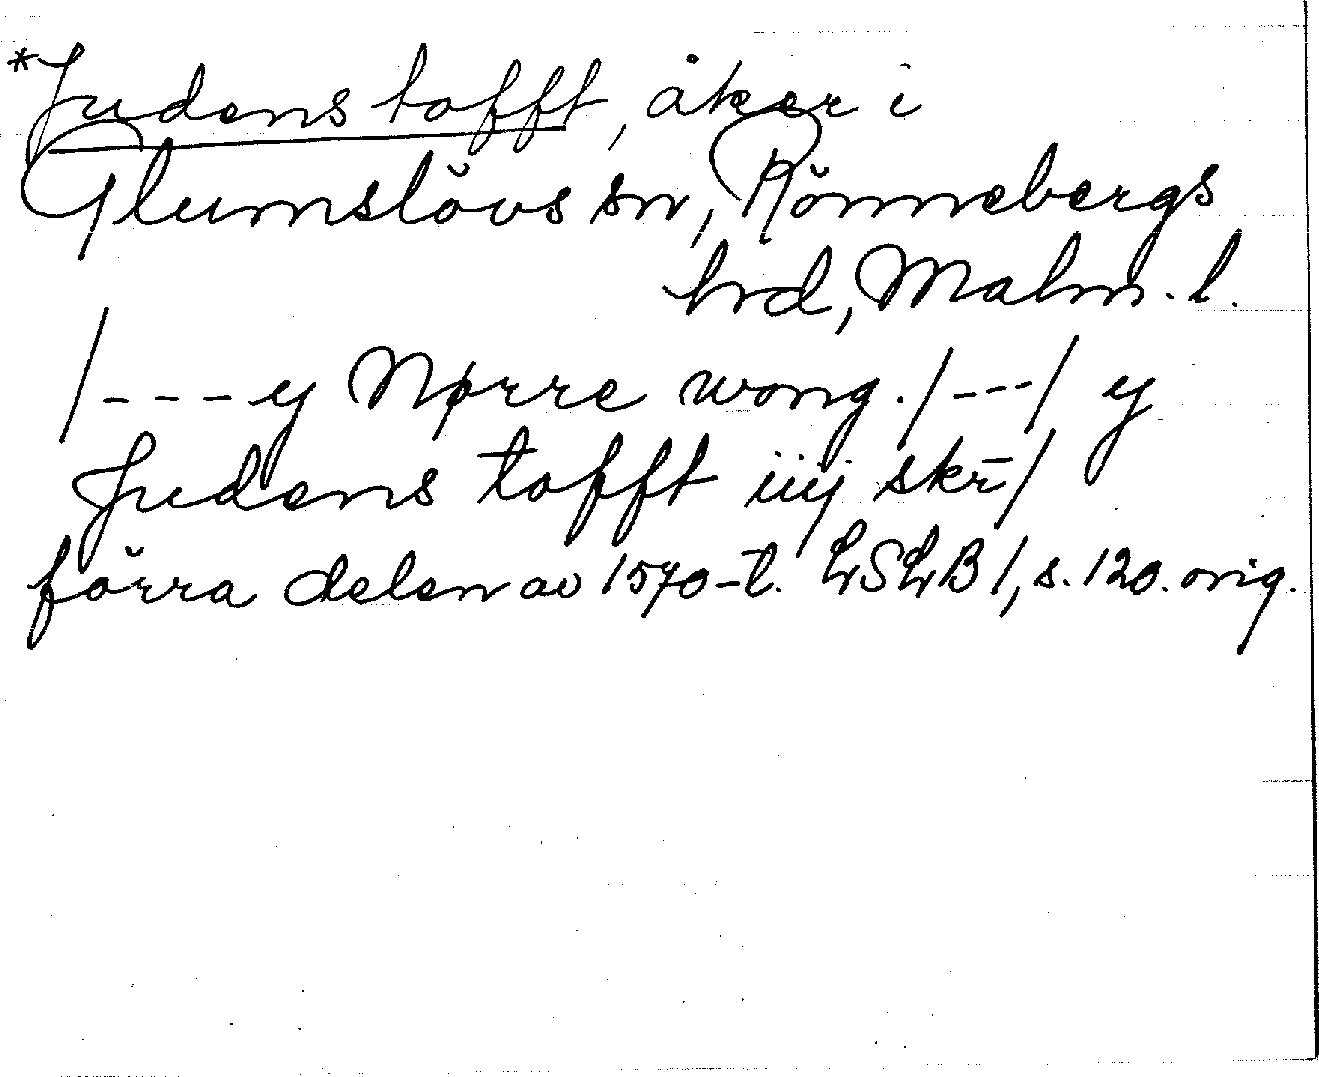 *Judens tofft, åker i
Glumslövs sn, Rönnebergs
hrd, Malm. l.
/---y Nørre wong./---/ y
Judens tofft iiij skr̄/
förra delen av 1570-t. LSLB 1, s. 120. orig.